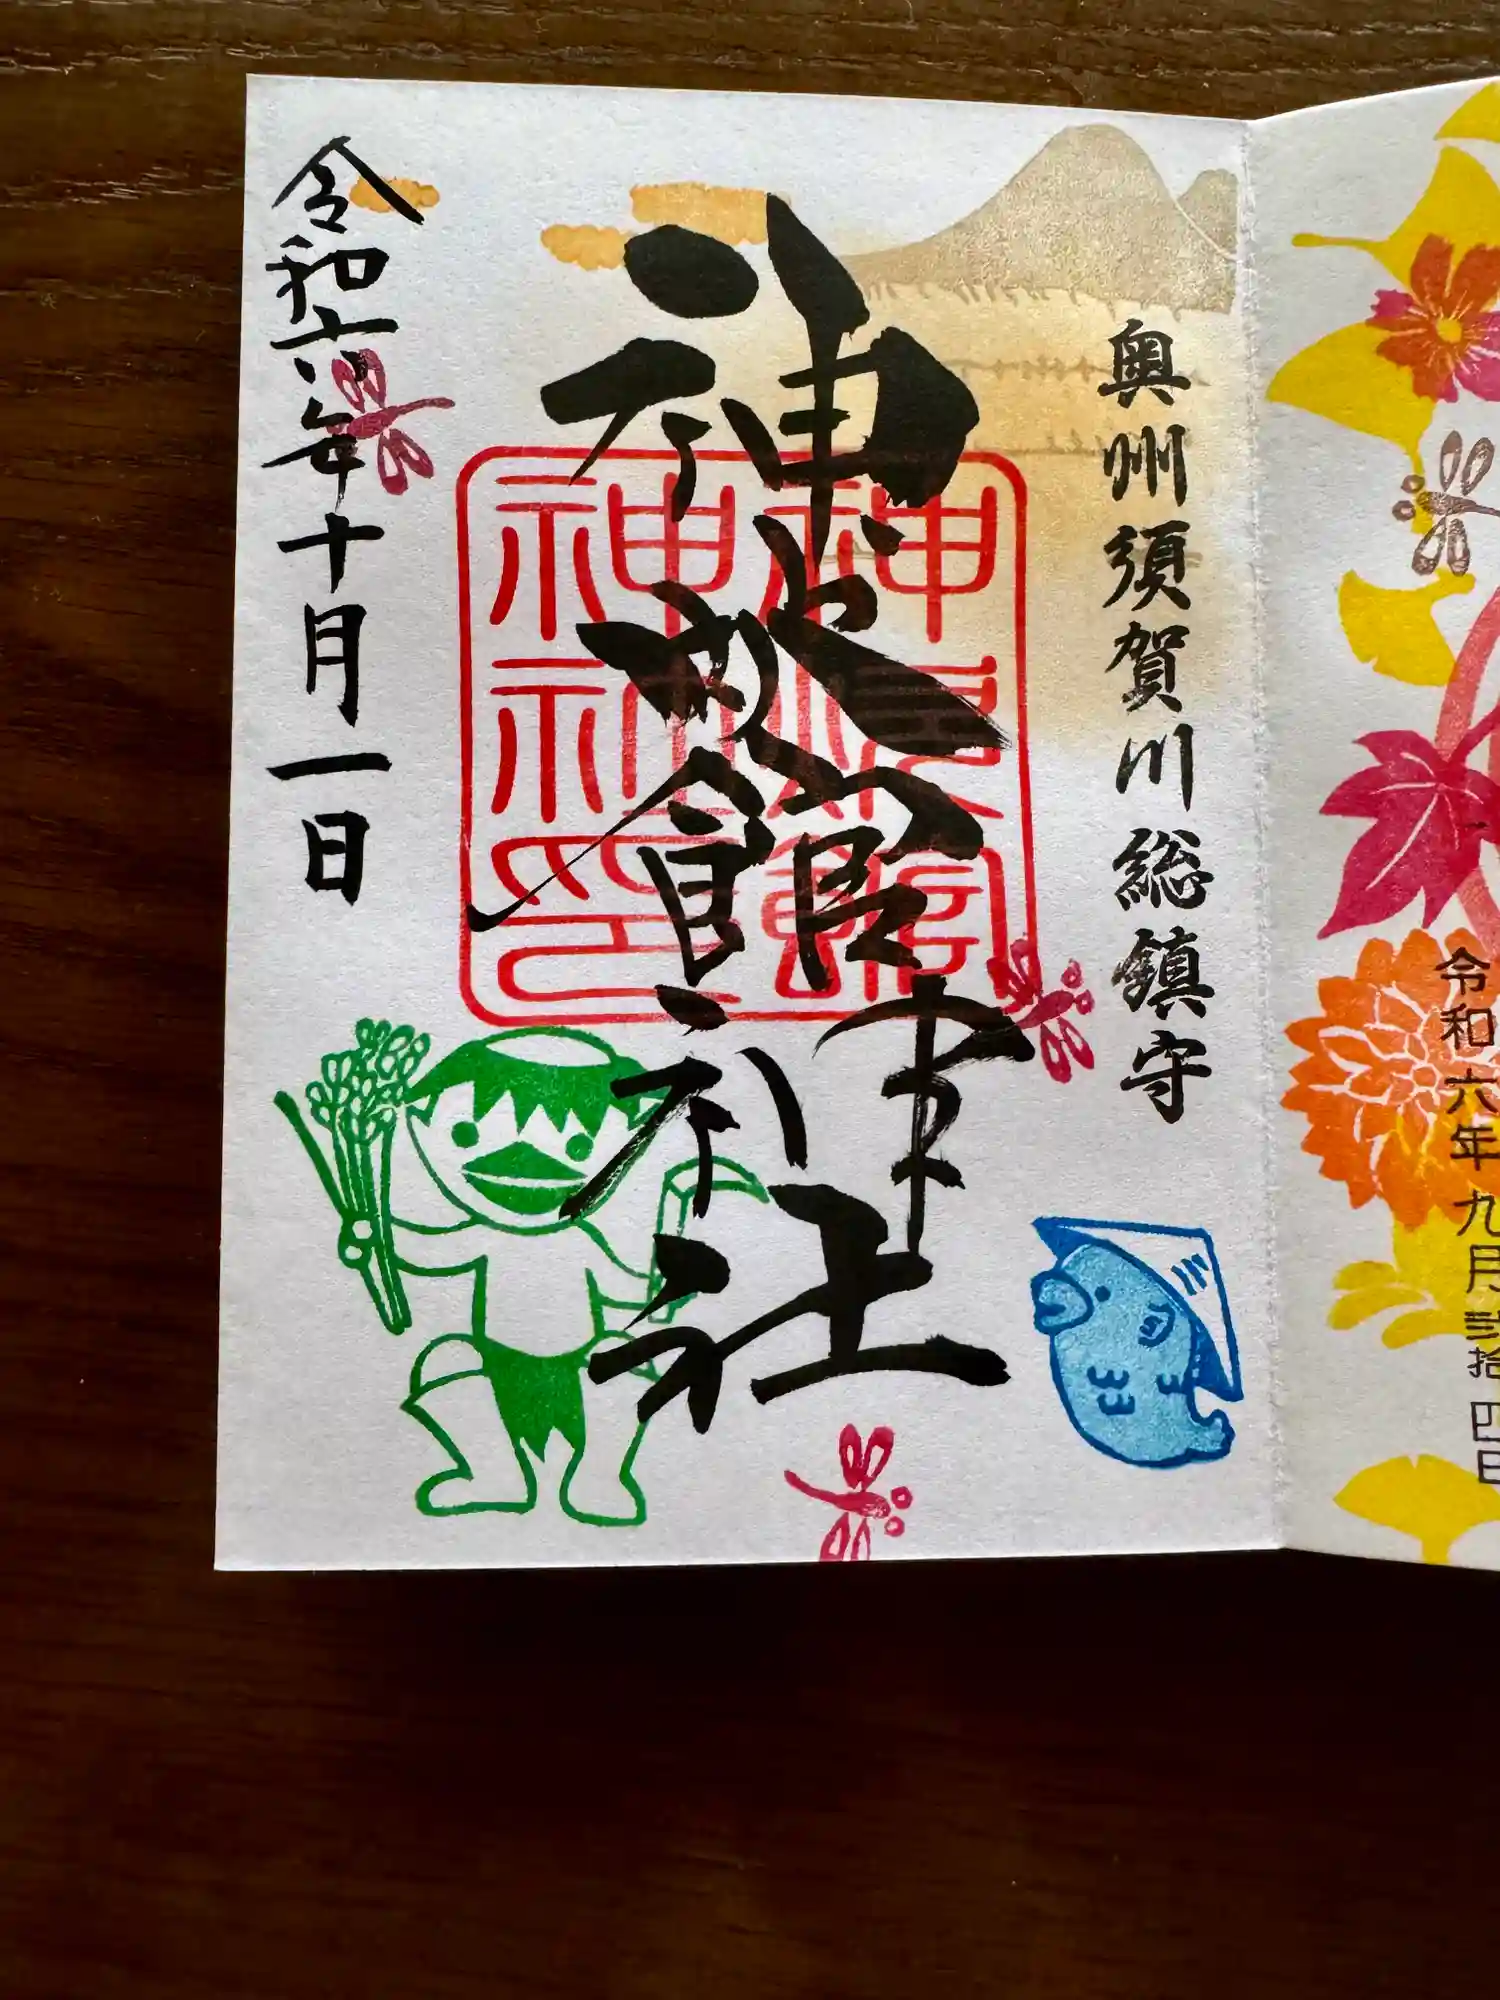 奥州須賀川総鎮守
神炊館神社
令和六年十月一日
神炊館
神社印
令和六年九月弐拾四日